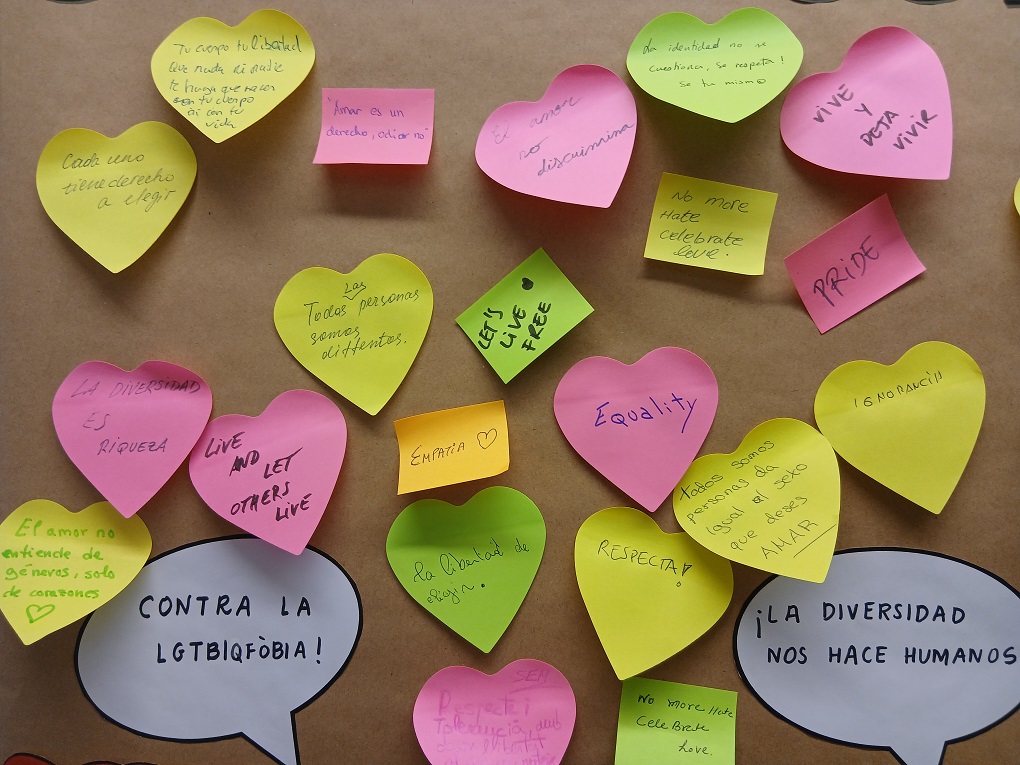 Tu cuerpo tu libertad
Que nada ni nadie
te haga que hacer
con tu cuerpo
ni con tu
vida
"Amar es un
derecho, odiar no"
El amor
no
discrimina
La identidad no se
cuestiona, se respeta!
Se tu mismo
VIVE
Y
DEJA
VIVIR
Cada uno
tiene derecho
a elegir
NO MORE
HATE
Celebrate
love.
PRIDE
Las
Todos personas
somos
diffentos.
LET'S
LIVE
FREE
LA DIVERSIDAD
ES
RIQUEZA
LIVE
AND LET
OTHERS
LIVE
EMPATIA
Equality
IGNORANCI
Todos somos
personas da
igual el sexo
que desees
AMAR
El amor no
entiende de
géneros, solo
de corazones
La libertad de
elegir.
RESPECTA!
CONTRA LA
LGTBIQFÒBIA!
¡LA DIVERSIDAD
NOS HACE HUMANOS
SEM
Respecte i
NO MORE Hate
CeleBrate
Love.